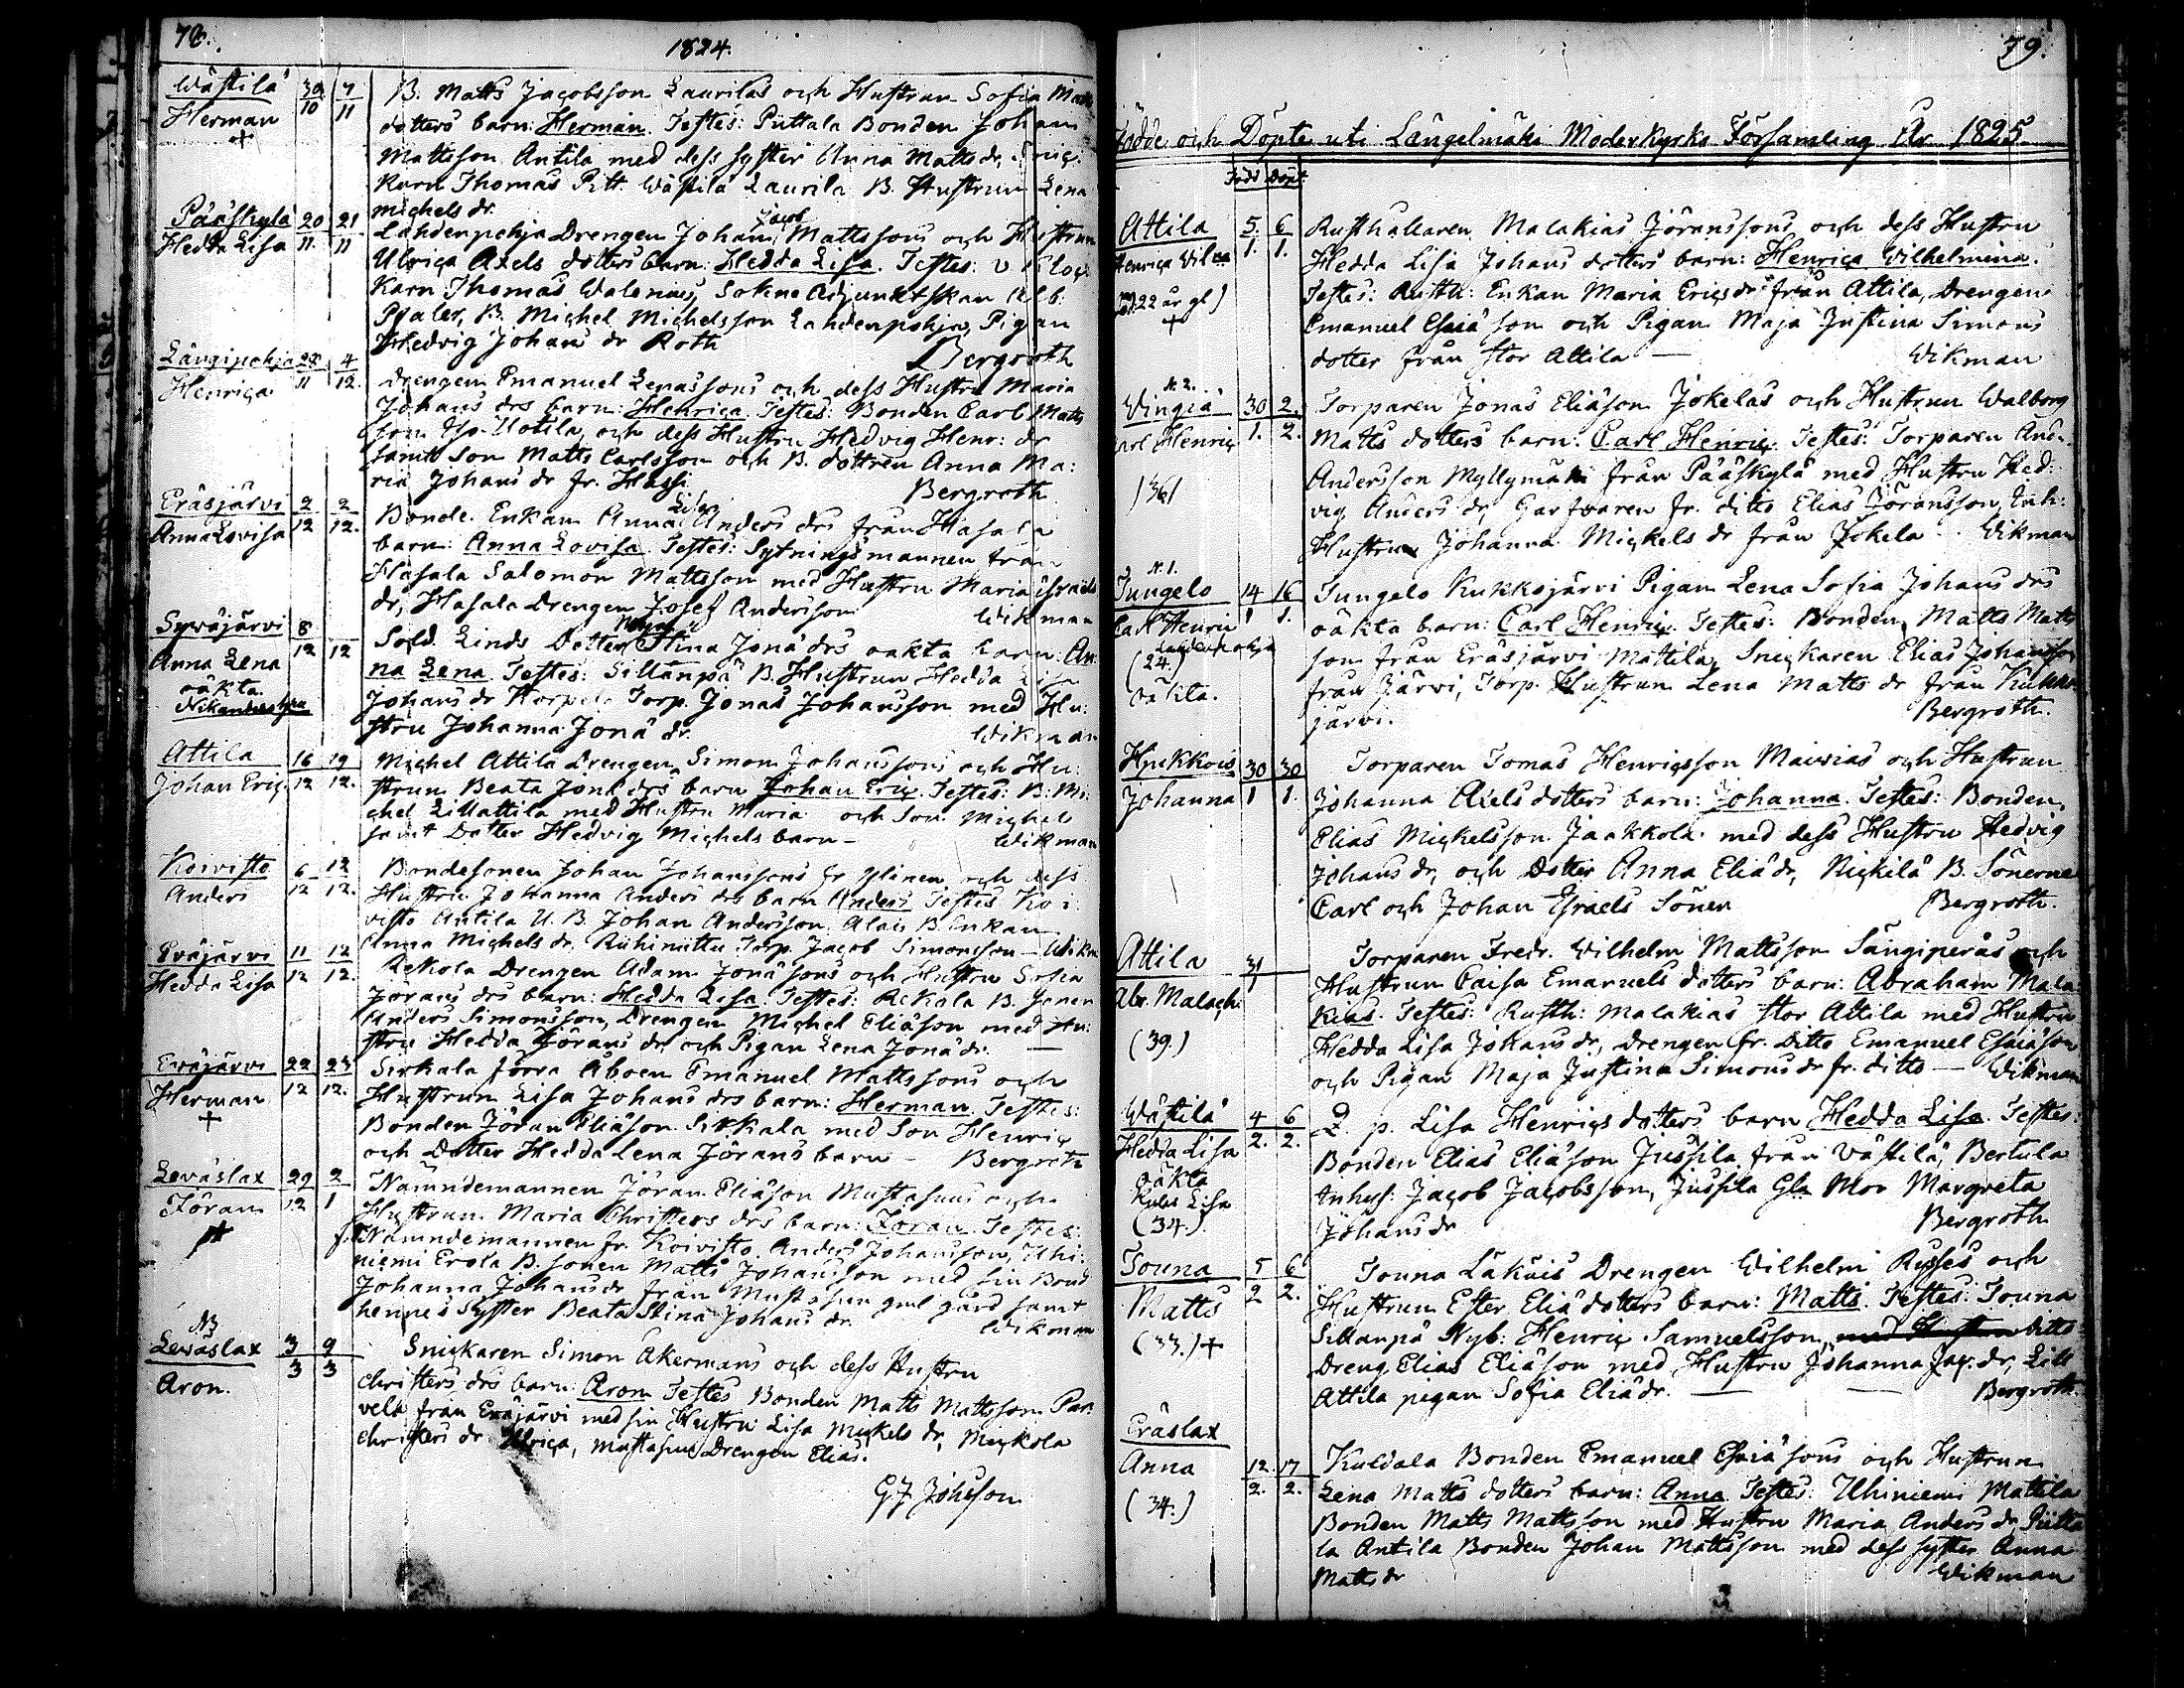 78.
1824.
Wästilä 30/10 7/11
Herman
+
B. Matts Jacobsson Laurilas och Hustrun Sofia Matts
dotters barn: Herman. Testes: Puttala Bonden Johan
Mattsson Antila med dess syster Anna Matts dr, Snic-
karn Thomas Pitt. Wästilä Laurila B. Hustrun Lena
Michels dr.
Pääskylä 20/11 21/11
Hedda Lisa
Lahdenpohja Drengen Johan Jacob Mattssons och Hustrun
Ulrica Axels dotters barn: Hedda Lisa. Testes: v Kloc-
karn Thomas Walenius, Sokne Adjunktskan Ulb.
Pealer, B. Michel Michelsson Lahdenpohja, Pigan
Hedvig Johans dr Roth
Bergroth
Längipohja 28/11 4/12.
Henrica
Drengen Emanuel Lenassons och dess Hustru Maria
Johans drs barn: Henrica. Testes: Bonden Carl Matts
son Uotila, och dess Hustru Hedvig Henr: dr
samt Son Matts Carlsson och B. dottren Anna Ma:
ria Johans dr fr. Hassi
Bergroth
Eräsjärvi 2/12 2/12.
Anna Lovisa
Bonde Enkan Anna Lisa Anders drs från Hasala
barn: Anna Lovisa. Testes: Sytningsmannen från
Hasala Salomon Mattsson med Hustru Maria Israels
dr, Hasala Drengen Josef Andersson
Wikman
Syväjärvi 8/12 12
Anna Lena
oäkta
Sold. Linds Dotter Stina Jona drs oäkta barn: An:
na Lena. Testes: Sillanpä B. Hustrun Hedda Lisa
Johans dr Korpela Torp. Jonas Johansson med Hu:
stru Johanna Jona dr.
Wikman
Attila 16/12 19/12.
Johan Eric.
Michel Attila Drengen Simon Johanssons och Hu:
strun Beata Jona drs barn Johan Eric. Testes: B: Mi:
chel Lillattila med Hustru Maria och Son Michel
samt Dotter Hedvig Michels barn –
Wikman
Koivisto 6/12 12/12.
Anders
Bondesonen Johan Johanssons fr Ylinen och dess
Hustru Johanna Anders drs barn Anders Testes Koi
visto Antila U. B. Johan Andersson, Alais B. Enkan
Anna Michels dr. Riihiniittu Torp. Jacob Simonsson – Wikm
Eräjärvi 11/12 12/12.
Hedda Lisa
Rekola Drengen Adam Jonä sons och Hustru Sofia
Jörans drs barn: Hedda Lisa. Testes: Rekola B. sonen
Anders Simonsson, Drengen Michel Eliäson med Hu:
stru Hedda Jörans dr och Pigan Lena Jonä dr. —
Eräjärvi 22/12 23/12.
Herman
+
Sirkala förra Åboen Emanuel Mattssons och
Hustrun Lisa Johans drs barn: Herman. Testes:
Bonden Jöran Eliäson Sirkala med Son Henric
och Dotter Hedda Lena Jörans barn –
Bergroth
Leväslax 29/12 2/1
Jöran
Nämndemannen Jöran Eliäson Mustasuus och
Hustrun Maria Christers drs barn: Jöran. Testes:
f. Nämndemannen fr. Koivisto Anders Johansson, Uhi:
niemi Erola B. sonen Matts Johansson med sin Brud
Johanna Johans dr från Mustasuu gml gård samt
hennes Syster Beata Stina Johans dr.
Wikman
N3
Leväslax 3/3 9/3
Aron.
Snickaren Simon Åkermans och dess Hustru
Christers drs barn: Aron Testes Bonden Matts Mattsson Par-
vela från Eräjärvi med sin Hustru Lisa Mickels dr, Mickola
Christers dr Ulrica, Mustasuu Drengen Elias.
G F Johsson
79.
Födde och Döpte uti Längelmäki Moderkyrko Församling År 1825
Född Döpt
Attila 5/1. 6/1.
Henrica Vilna
(mod. 22 år gl)
+
Rusthållaren Malakias Jöranssons och dess Hustru
Hedda Lisa Johans dotters barn: Henrica Wilhelmina.
Testes: Rustth: Enkan Maria Erics dr från Attila, Drengen
Emanuel Esaiä son och Pigan Maja Justina Simons
dotter från stor Attila —
Wikman
N 2.
Wingiä 30/1. 2./2.
Carl Henric
(36)
Torparen Jonas Eliäson Jokelas och Hustrun Walborg
Matts dotters barn: Carl Henric. Testes: Torparen And.
Andersson Myllymäki från Pääskylä med Hustru Hed:
vig Anders dr, Garfvaren fr. ditto Elias Jöransson, Inh:
Hustrun Johanna Mickels dr från Jokela – Wikman
N 1.
Jungelo 14/1 16/1.
Carl Henric
Lahdenpohja
(24.)
oäkta.
Jungelo Kukkojärvi Pigan Lena Sofia Johans drs
oäkta barn: Carl Henric. Testes: Bonden Matts Matts
son från Eräsjärvi Mattila, Snickaren Elias Johansson
från Järvi, Torp. Hustrun Lena Matts dr från Kukko
järvi.
Bergroth.
Hpukkois 30/1 30/1.
Johanna
Torparen Tomas Henricsson Maivias och Hustrun
Johanna Axels dotters barn: Johanna. Testes: Bonden
Elias Mickelsson Jaakkola med dess Hustru Hedvig
Johans dr, och Dotter Anna Eliä dr, Nickilä B. Sönerne
Carl och Johan Israels Söner
Bergroth.
Attila 31/1
Abr. Malach:
(39.)
Torparen Fredr. Wilhelm Mattsson Sängiperäs och
Hustrun Caisa Emanuels dotters barn: Abraham Mala
kias. Testes: Rusth: Malakias stor Attila med Hustru
Hedda Lisa Johans dr, Drengen fr. Ditto Emanuel Esaiäson
och Pigan Maja Justina Simons dr fr. ditto — Wikman
Wästilä 4/2. 6/2.
Hedda Lisa
oäkta
(34.)
Q. p. Lisa Henrics dotters barn Hedda Lisa. Testes:
Bonden Elias Eliäson Jussila från Västilä, Bertula
Inhys: Jacob Jacobsson, Jussila Gl. Mor Margreta
Johans dr
Bergroth
Touna 5/2 6/2.
Matts
(33.) +
Touna Lakois Drengen Wilhelm Rysses och
Hustrun Ester Eliä dotters barn: Matts. Testes: Touna
Sillanpä Nyb: Henric Samuelsson med Hustru ditto
Dreng Elias Eliäson med Hustru Johanna Jac: dr, Lill
Attila pigan Sofia Eliä dr. —
Bergroth.
Eräslax
Anna 12./2. 17/2.
(34.)
Kuldala Bonden Emanuel Esaiä sons och Hustrun
Lena Matts dotters barn: Anna. Testes: Uhiniemi Mattila
Bonden Matts Mattsson med Hustru Maria Anders dr, Piitta
la Antila Bonden Johan Mattsson med dess syster Anna
Matts dr
Wikman
3